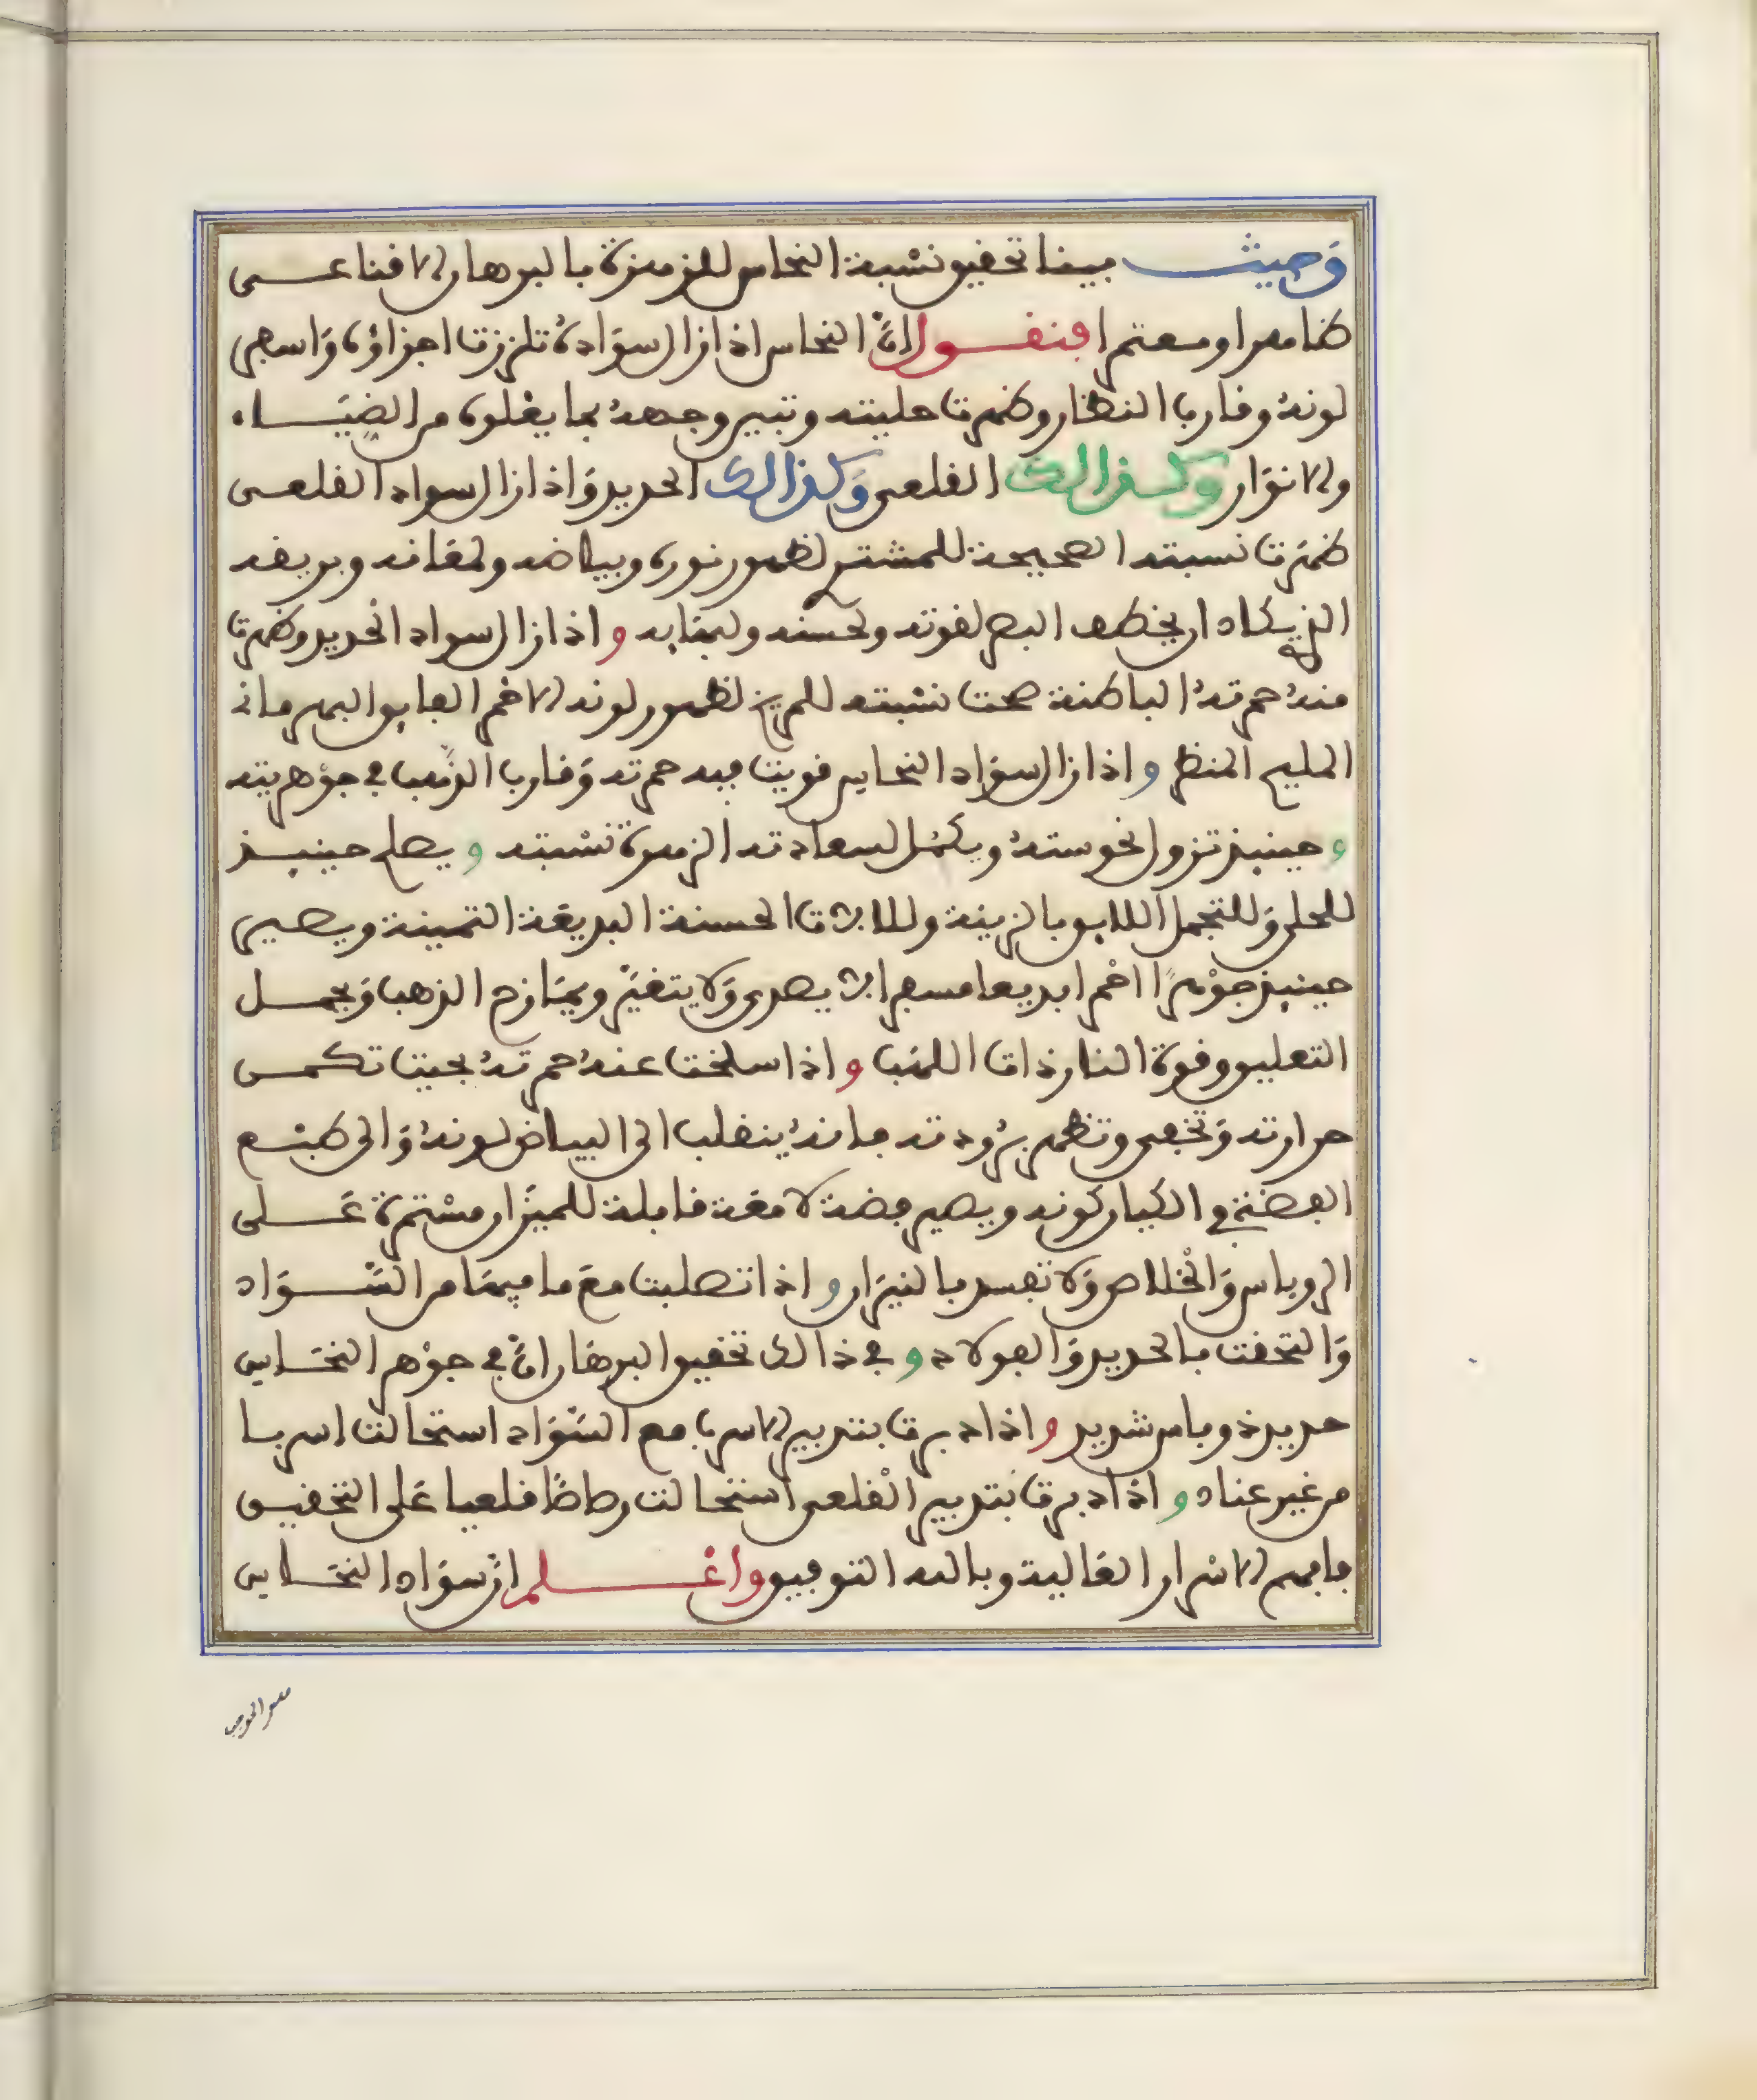 وَحيث بينا تحقيق نسْبة النحاس للزهرة بالبرهان الاقناعى
ظاهرا ومعتمرا فنقـول انَّ النحاس اذا زال سوَادهُ تلززت اجزاؤه وَاسفر
لونهُ وقارب النظار وظهرت حليته وتبين وجههُ بما يغلوه من الضيَـاء
والانوَار وكـذالك القلعى وَكذالك الحديد وَاذا زال سواد القلعـى
ظهَرت نسبته الصحيحة للمشترى لظهور نوره وبياضه ولمعَانه وبريقه
الذى يكاد ان يخطف البصر لقوته ولحسنه ولبهَايه واذا زال سواد الحديد وظهرت
منهُ حمرتهُ الباطنة صحت نسْبته للمريخ لظهور لونه الاحمر الفايق البهرمانى
المليح المنظر واذا زال سوَاد النحاس قويت فيه حمرته وَقارب الذهب فى جوْهريته
وحينيذ تزول نحوستهُ ويكمُل لسعادته الزهرة نسْبته ويصلح حينيـذ
للحلى وَللتجمل اللايق بالزينة وللالات الحسنة البديعَة الثمينة ويصير
حينيذ جوْهرًا احْمرا بديعا مسفرا لا يصدى وَلا يتغيَّر ويمَازج الذهب وَيحمـل
التعليق وقوة النار ذات اللهَب واذا سلخت عنهُ حمرتهُ بحيث تكمـن
حرارته وَتخفى وتظهر برُودته فانهُ ينقلب الى البياض لونهُ وَالى طبْـع
الفضة فى الكيان كونه ويصير فضة لامعَة قابلة للميزَان مسْتمرة عَـلى
الروباس وَالخْلاص وَلا تفسد بالنيرَان واذا تصلبت معَ ما فيهَا من السَّـوَاد
وَالتحقت بالحديد وَالفولاد وفى ذالك تحقيق البرهَان انَّ فى جوْهر النحَـاس
حديد ذو باس شديد واذا دبرت بتدبير الاسرب مع السَّوَاد استحالت اسربـا
من غير عناد واذا دبرت بتدبير القْلعى استحالت رصاصًا قلعيا عَلى التحقيـق
فافهم الاسْرار العَالية وبالله التوفيق واعْـلم انَّ سوَاد النحَـاس
هو الموجب